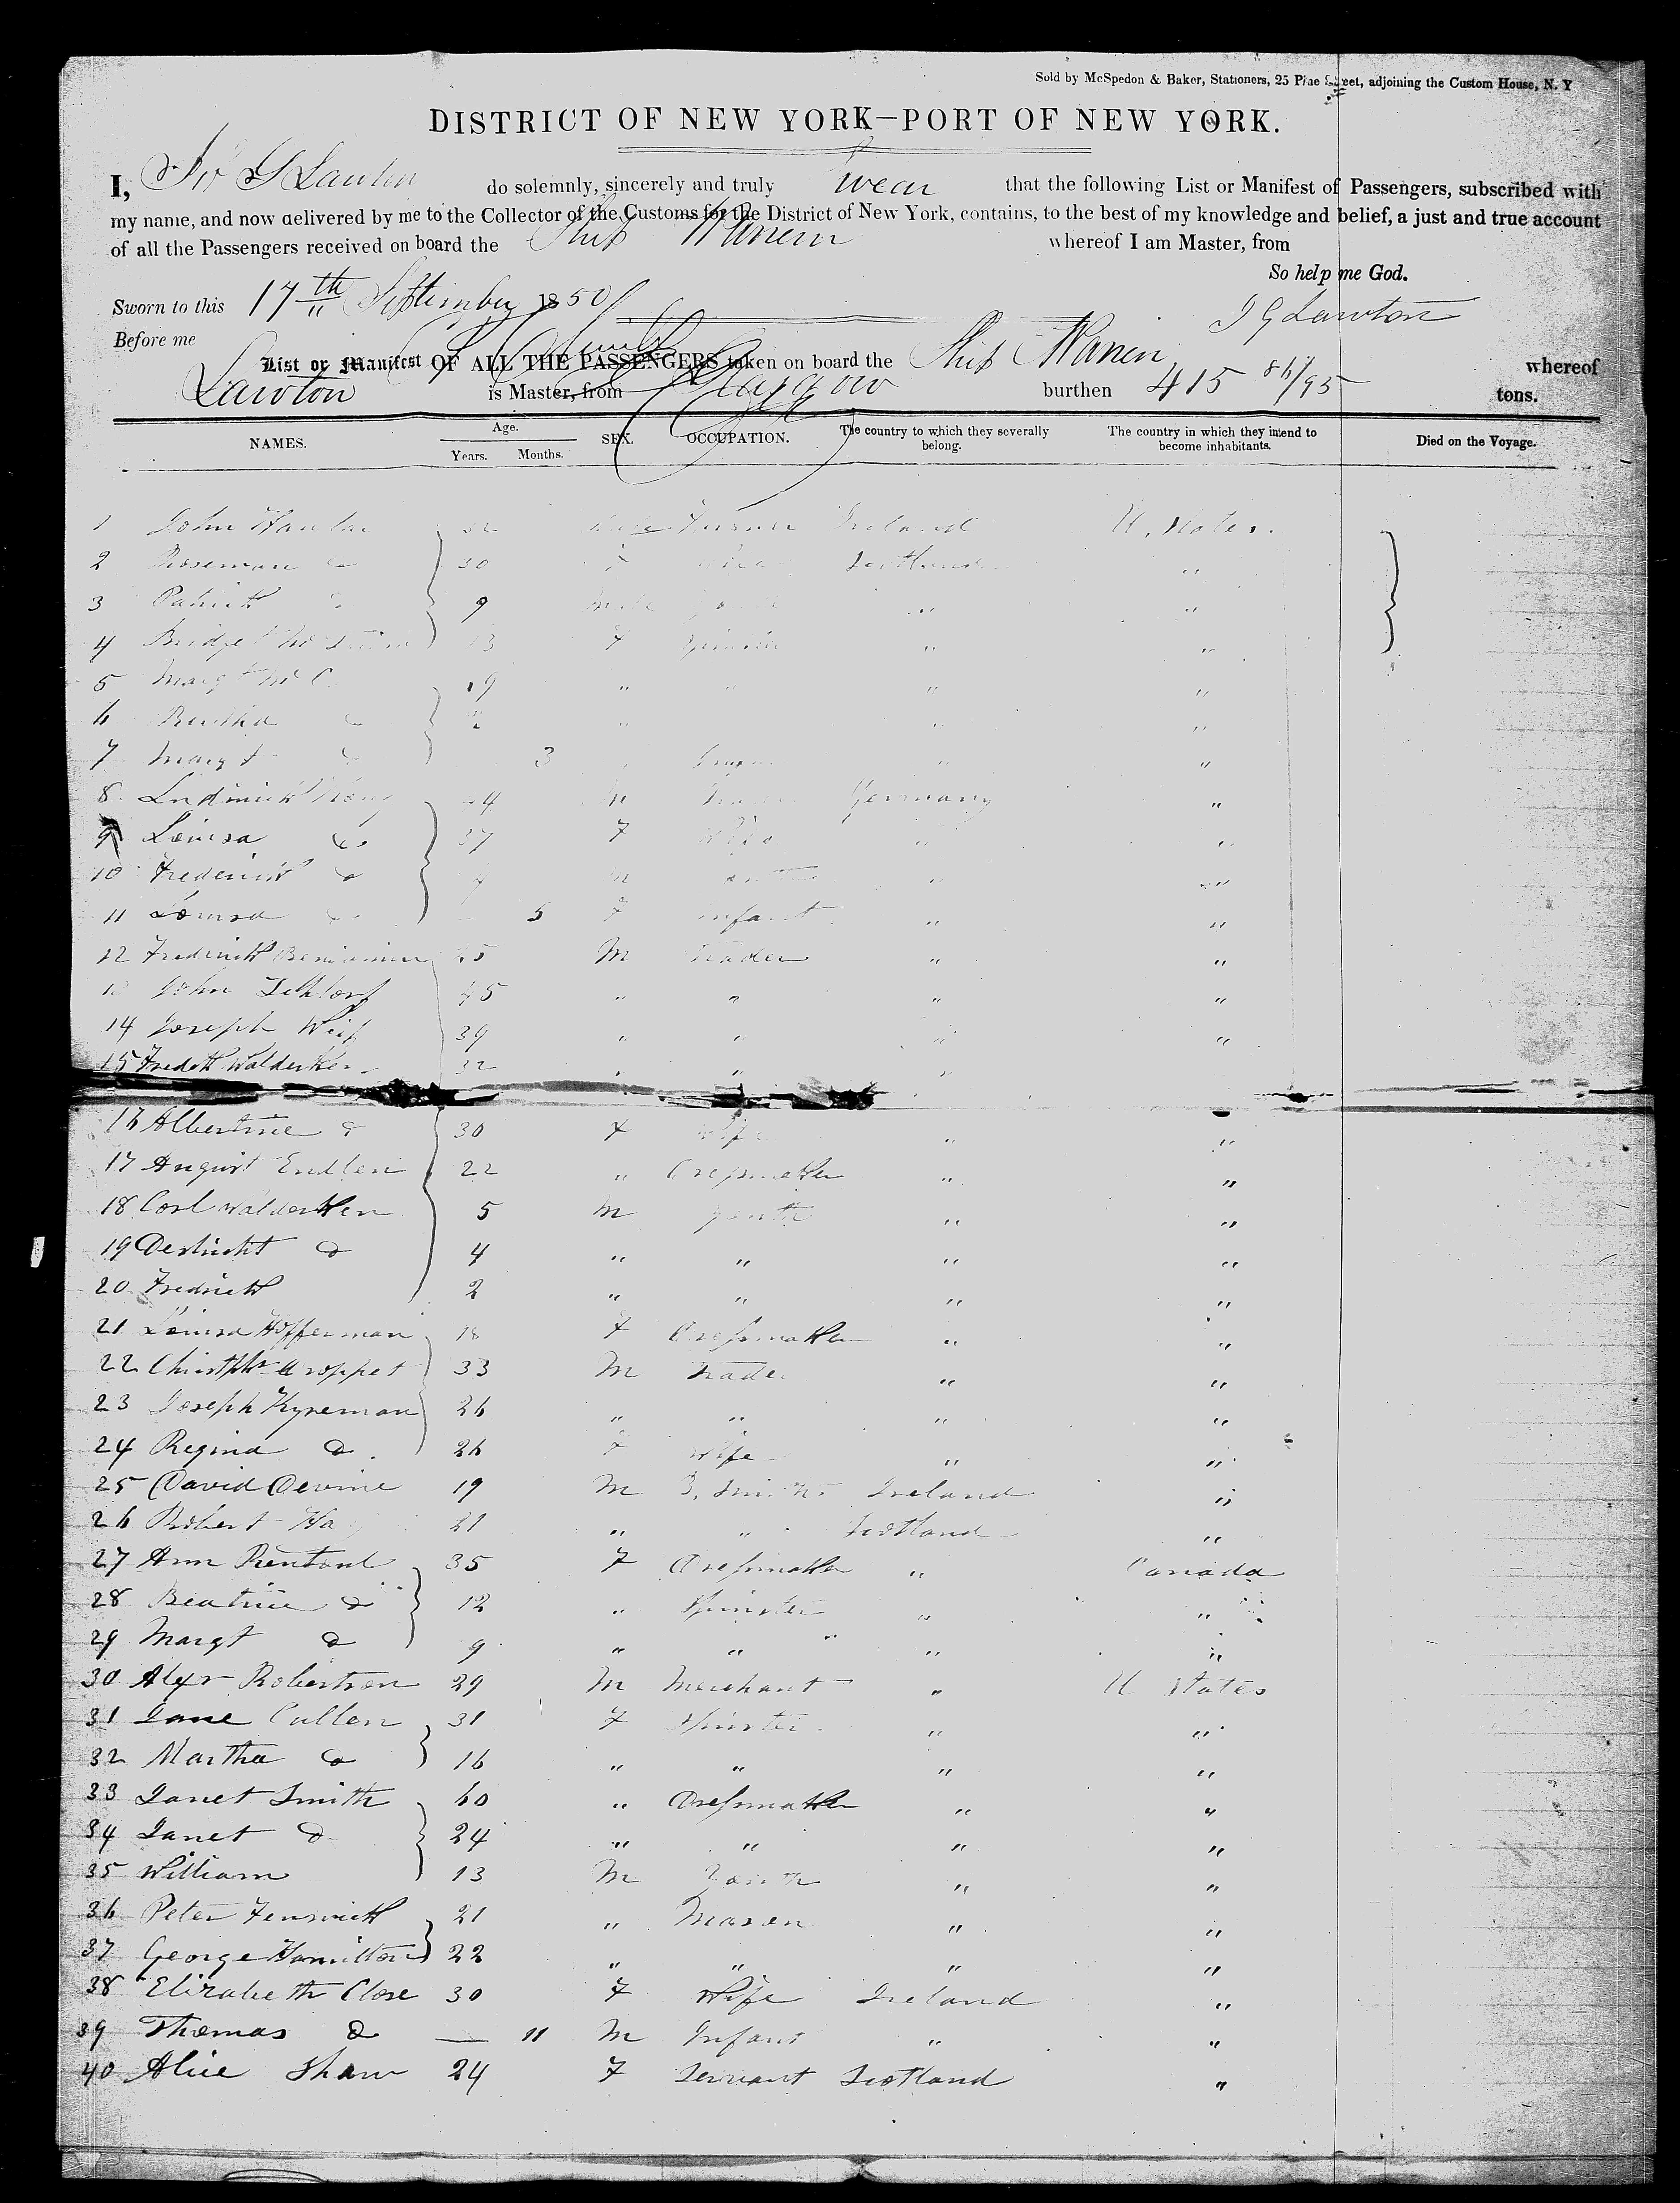 Sold by McSpedon & Baker, Stationers, 25 Pine Street, adjoining the Custom House, N. Y
DISTRICT OF NEW YORK—PORT OF NEW YORK.
I, G Lawton do solemnly, sincerely and truly swear that the following List or Manifest of Passengers, subscribed with
my name, and now delivered by me to the Collector of the Customs for the District of New York, contains, to the best of my knowledge and belief, a just and true account
of all the Passengers received on board the Ship Warren whereof I am Master, from
So help me God.
Sworn to this 17th September 1850 J G Lawton
Before me
List or Manifest OF ALL THE PASSENGERS taken on board the Ship Warren whereof
Lawton is Master, from Glasgow burthen 415 86/95 tons.
NAMES. Age. Years. Months. SEX. OCCUPATION. The country to which they severally belong. The country in which they intend to become inhabitants. Died on the Voyage.
1 John 32 Male Farmer Ireland U. States.
2 Roseman do 30 Scotland "
3 Patrick do 9 male " "
4 Bridget F Spinster " "
5 Margt 19 " " " "
6 do 2 " " "
7 Margt do 3 " "
8 M Germany "
9 Louisa do 37 F Wife " "
10 Frederick do M " "
11 Louisa do 5 F Infant " "
12 Frederick Benjamin M Trader " "
13 John 45 " " " "
14 Joseph Weiss 39 " " " "
15 Fredck 32 " " "
16 Albertine do 30 F Wife " "
17 August 22 " Dressmaker " "
18 Carl 5 M Youth " "
19 do 4 " " " "
20 Fredrick 2 " " " "
21 Louisa Hofferman 18 F Dressmaker " "
22 Christphr 33 M Trader " "
23 Joseph 26 " " " "
24 Regina do 26 F Wife " "
25 David Devine 19 M B. Smith Ireland "
26 Robert 21 " " Scotland "
27 Ann Rentoul 35 F Dressmaker " Canada
28 Beatrice do 12 " Spinster " "
29 Margt do 9 " " " "
30 Alexr Robertson 29 M Merchant " U States
31 Jane Cullen 31 F Spinster " "
32 Martha do 16 " " " "
33 Janet Smith 60 " Dressmaker " "
34 Janet do 24 " " " "
35 William 13 M Youth " "
36 Peter Fenwick 21 " Mason " "
37 George Hamilton 22 " " " "
38 Elizabeth Close 30 F Wife Ireland "
39 Thomas do — 11 M Infant " "
40 Alice Shaw 24 F Servant Scotland "